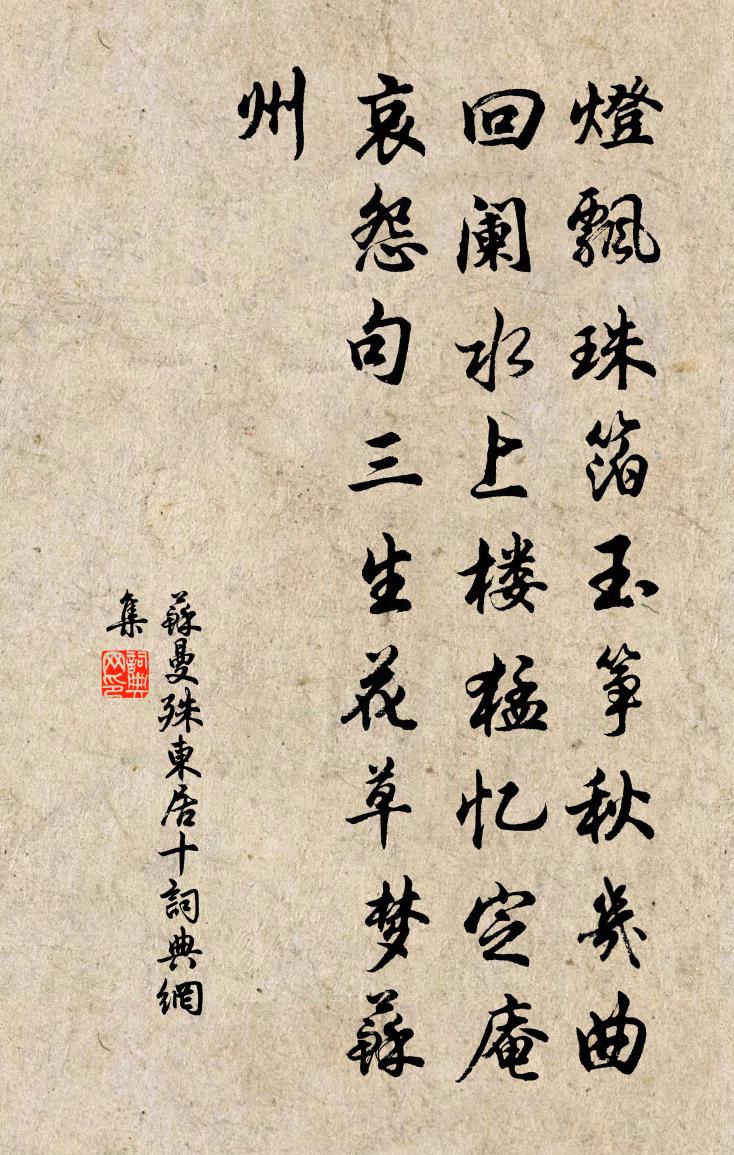 燈飄珠箔玉箏秋幾曲
回阑水上楼猛忆定庵
哀怨句三生花草梦蘇
州
蘇曼殊東居十詞典網
集
詞典
网印